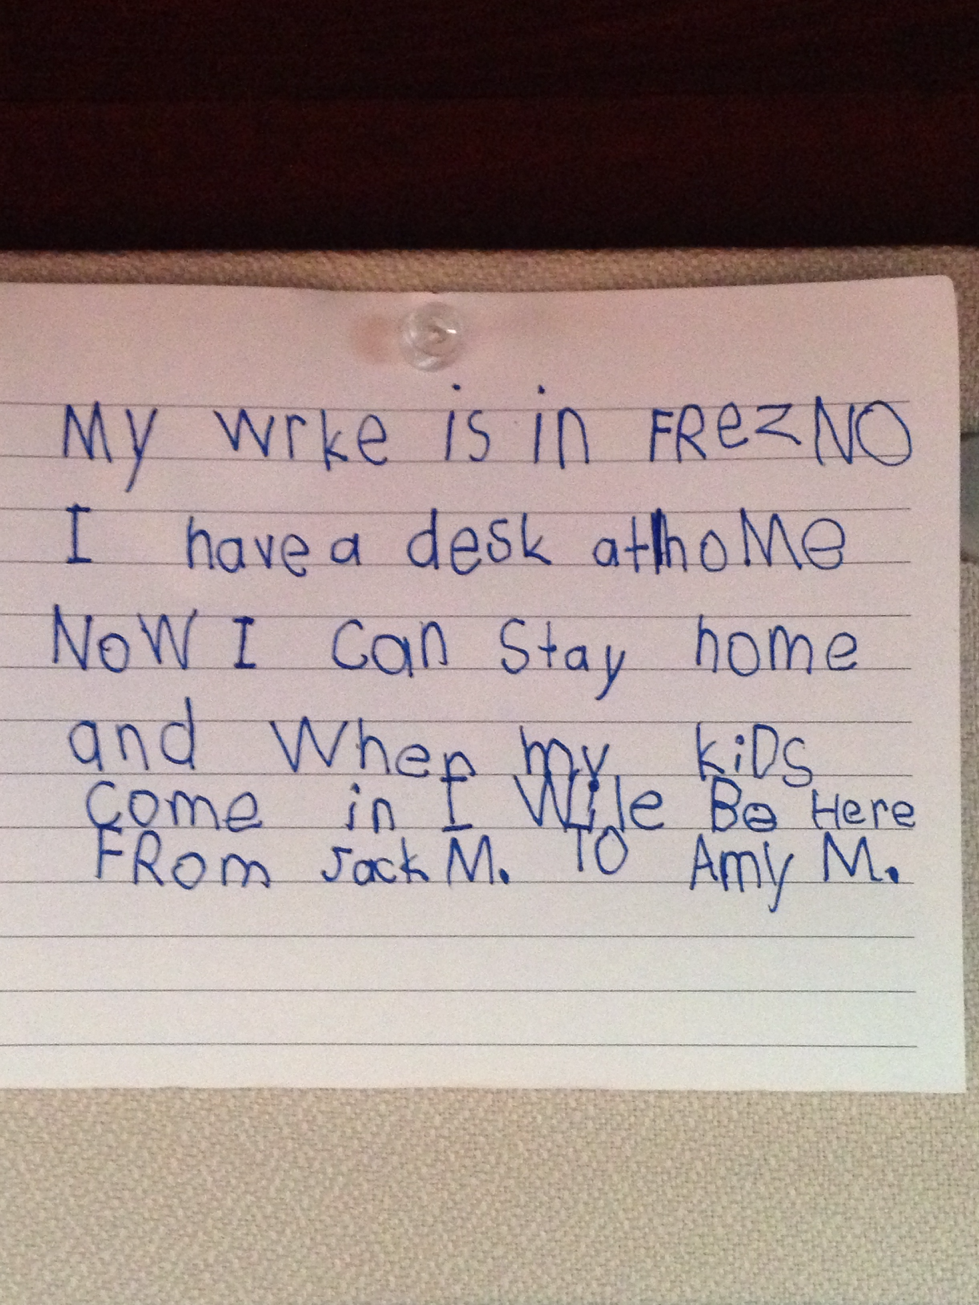 My wrke is in FRezNO
I have a desk athoMe
NoW I Can Stay home
and When my kiDs
Come in I Wile Be Here
FRom Jack M. TO Amy M.